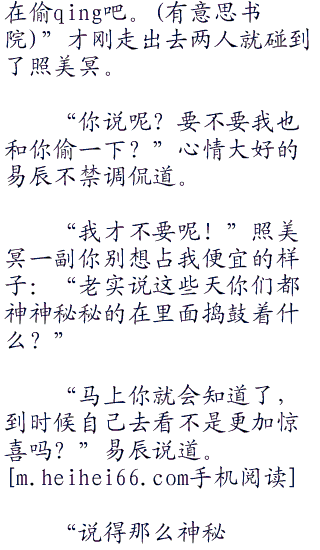 在偷qing吧。(有意思书
院)”才刚走出去两人就碰到
了照美冥。
“你说呢？要不要我也
和你偷一下？”心情大好的
易辰不禁调侃道。
“我才不要呢！”照美
冥一副你别想占我便宜的样
子：“老实说这些天你们都
神神秘秘的在里面捣鼓着什
么？”
“马上你就会知道了，
到时候自己去看不是更加惊
喜吗？”易辰说道。
[m.heihei66.com手机阅读]
“说得那么神秘